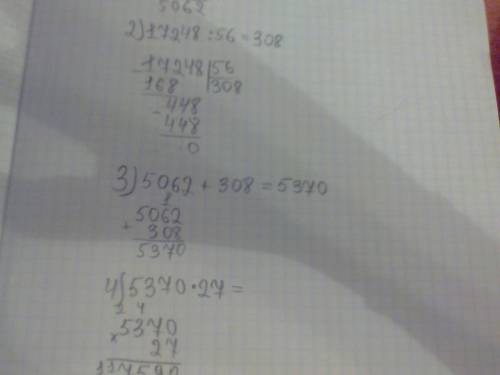 5062
2) 17248 : 56 = 308
- 17248 | 56
168 | 308
- 448
448
0
3) 5062 + 308 = 5370
1
+ 5062
308
5370
4) 5370 · 27 =
2 4
× 5370
27